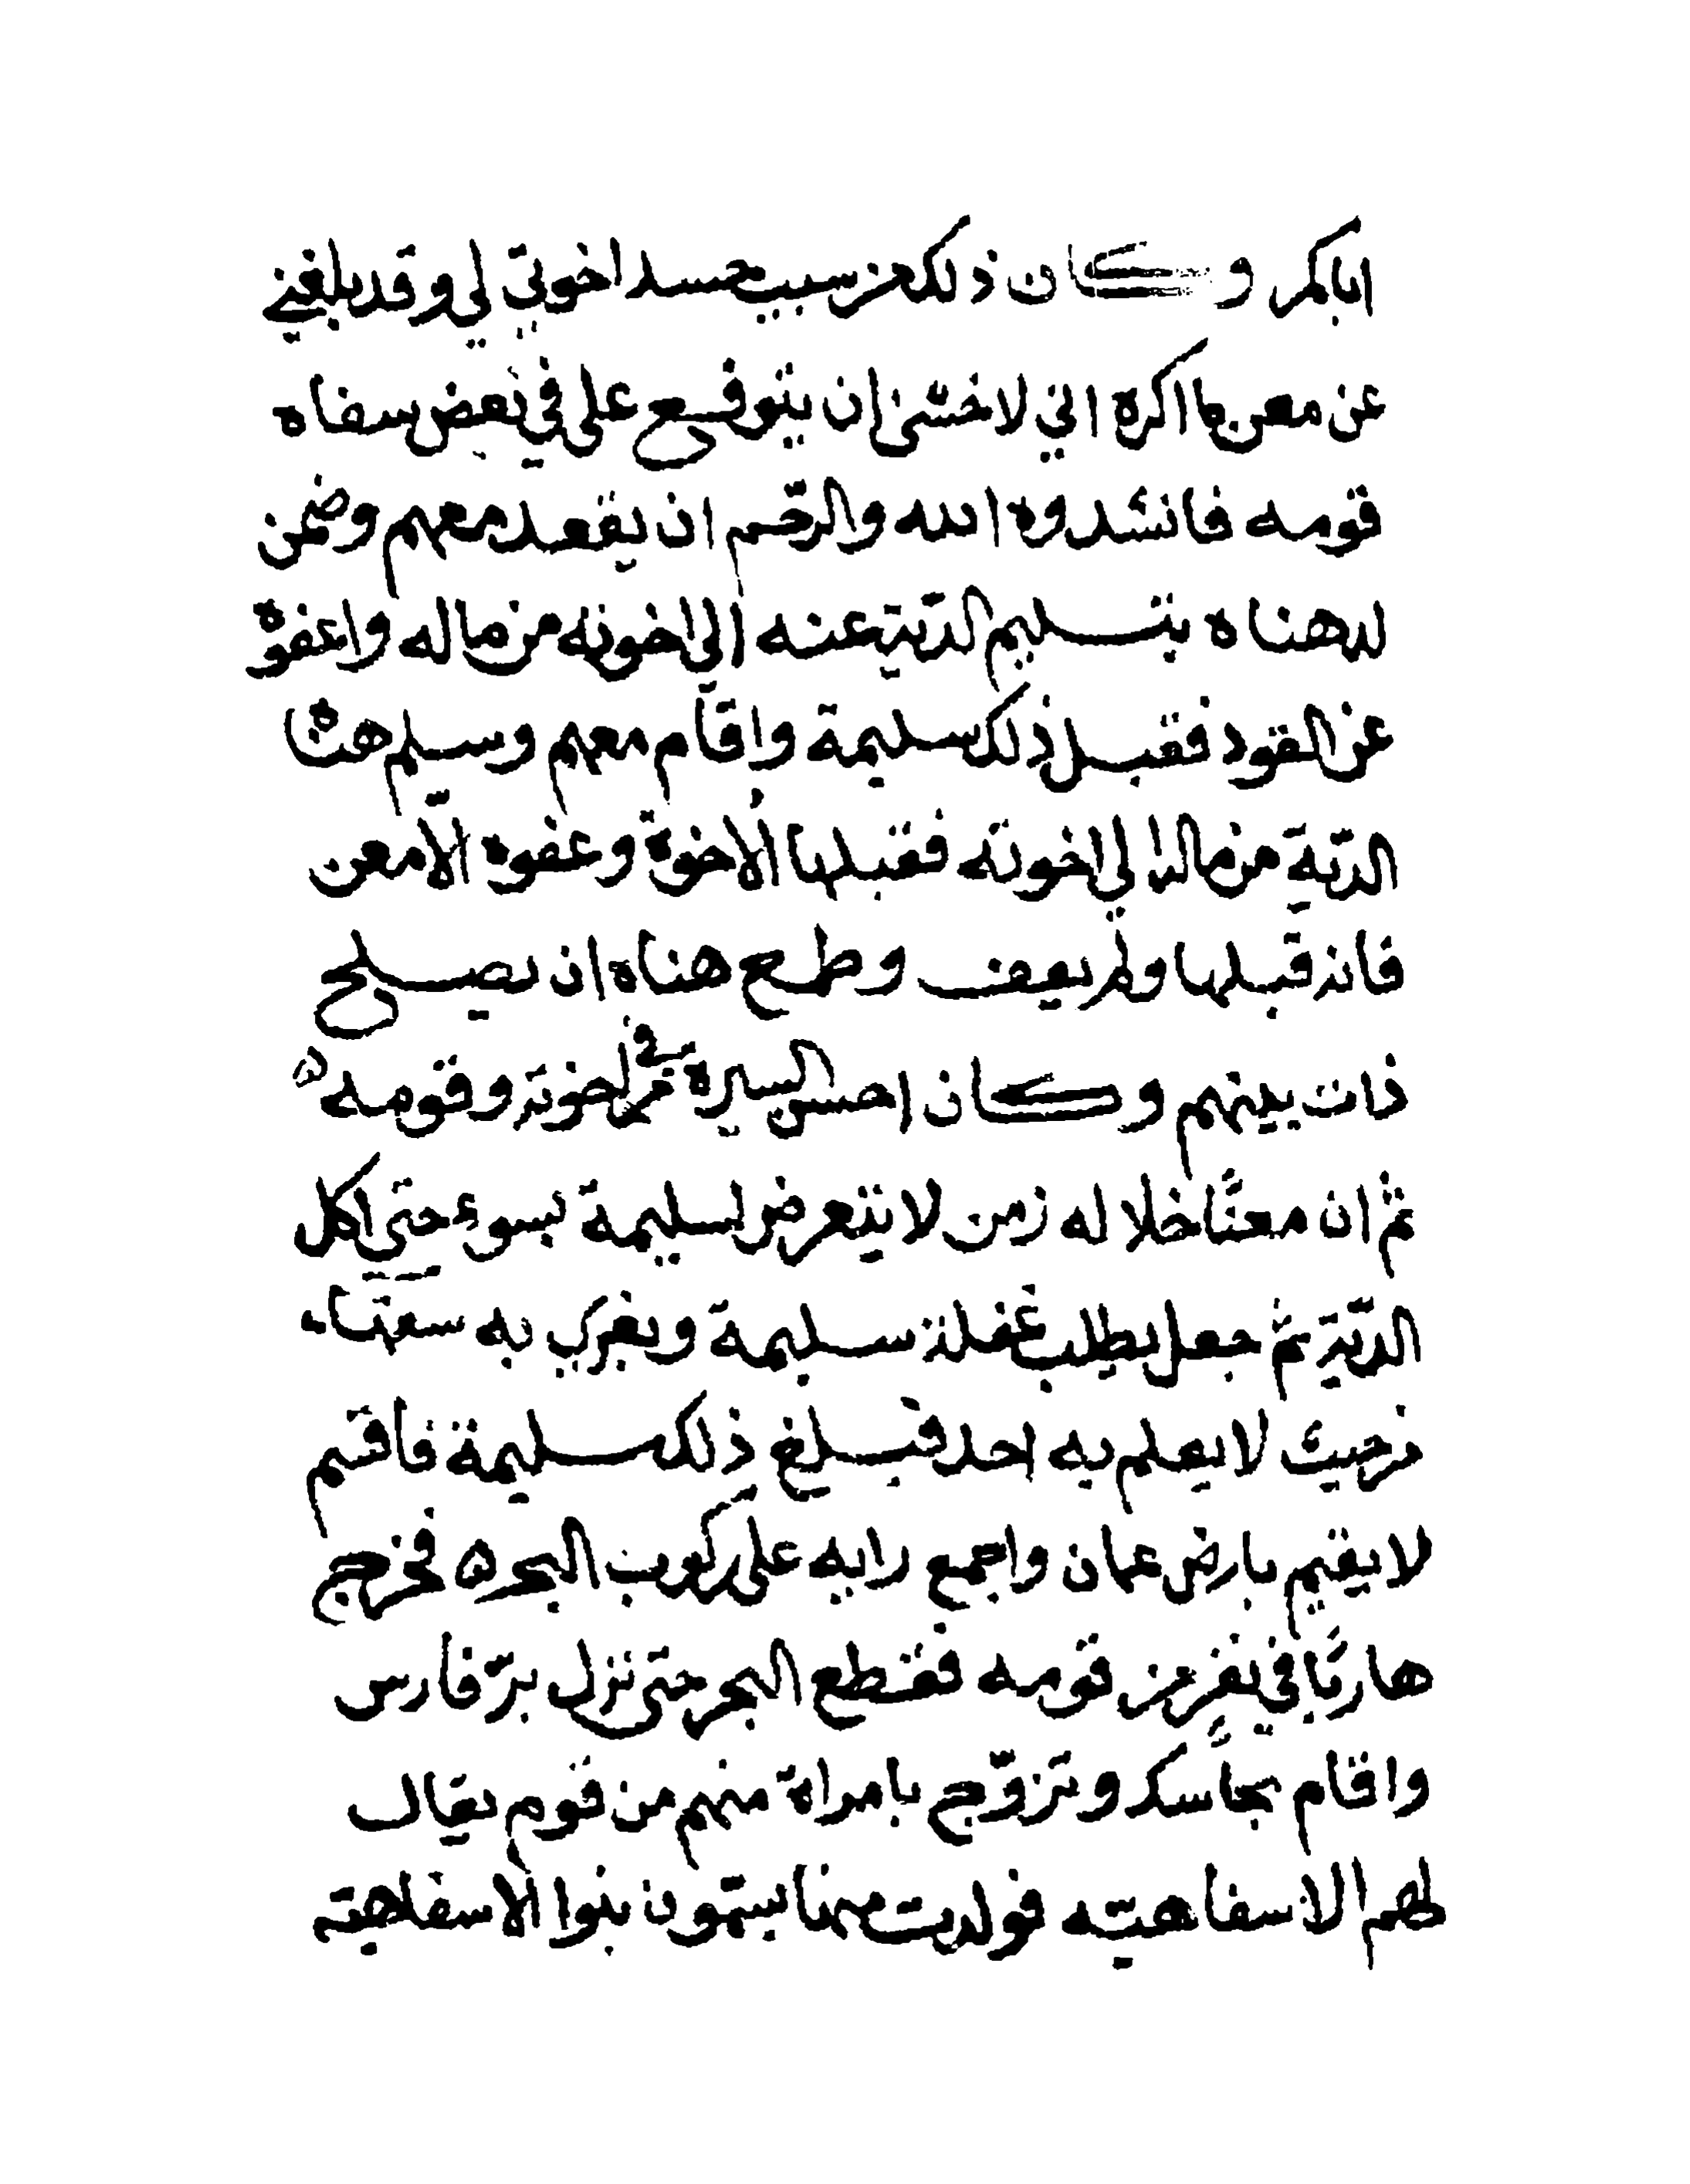 اباكم وكان ذلك عن سبب حسد اخوتي لي وقد بلغني
عن معن ما اكره اني لاخشى ان يتوقع علي في بعض سفاه
قومه فانشدوه الله والرحم ان يقعد معهم وضمن
له هناه بتسليم الدّية عنه الى اخوته من ماله واعفوه
عن القود فقبل ذلك سليمة واقام معهم وسلم هناه
الدّية من ماله الي اخوته فقبلها الاخوة وعفوه الّا معن
فانه قبلها ولم يعف وطمع هناه ان يصلح
ذات بينهم وكان احسن السيرة في اخوته وقومه ه
ثم ان معنًا خلا له زمن لا يتعرض لسليمة بسوء حتى اكل
الدّية ثم جعل يطلب غفلة سليمة ويغري به سفهاء
من حيث لا يعلم به احد فبلغ ذلك سليمة فاقسم
لا يقيم بارض عمان واجمع رايه على ركوب البحر ه فخرج
هاربًا في نفر من قومه فقطع البحر حتى نزل برّ فارس
واقام بجاسك وتزوّج بامراة منهم من قوم يقال
لهم الاسفاهيّه فولدت منها يسمّون بنوا الاسفاهية